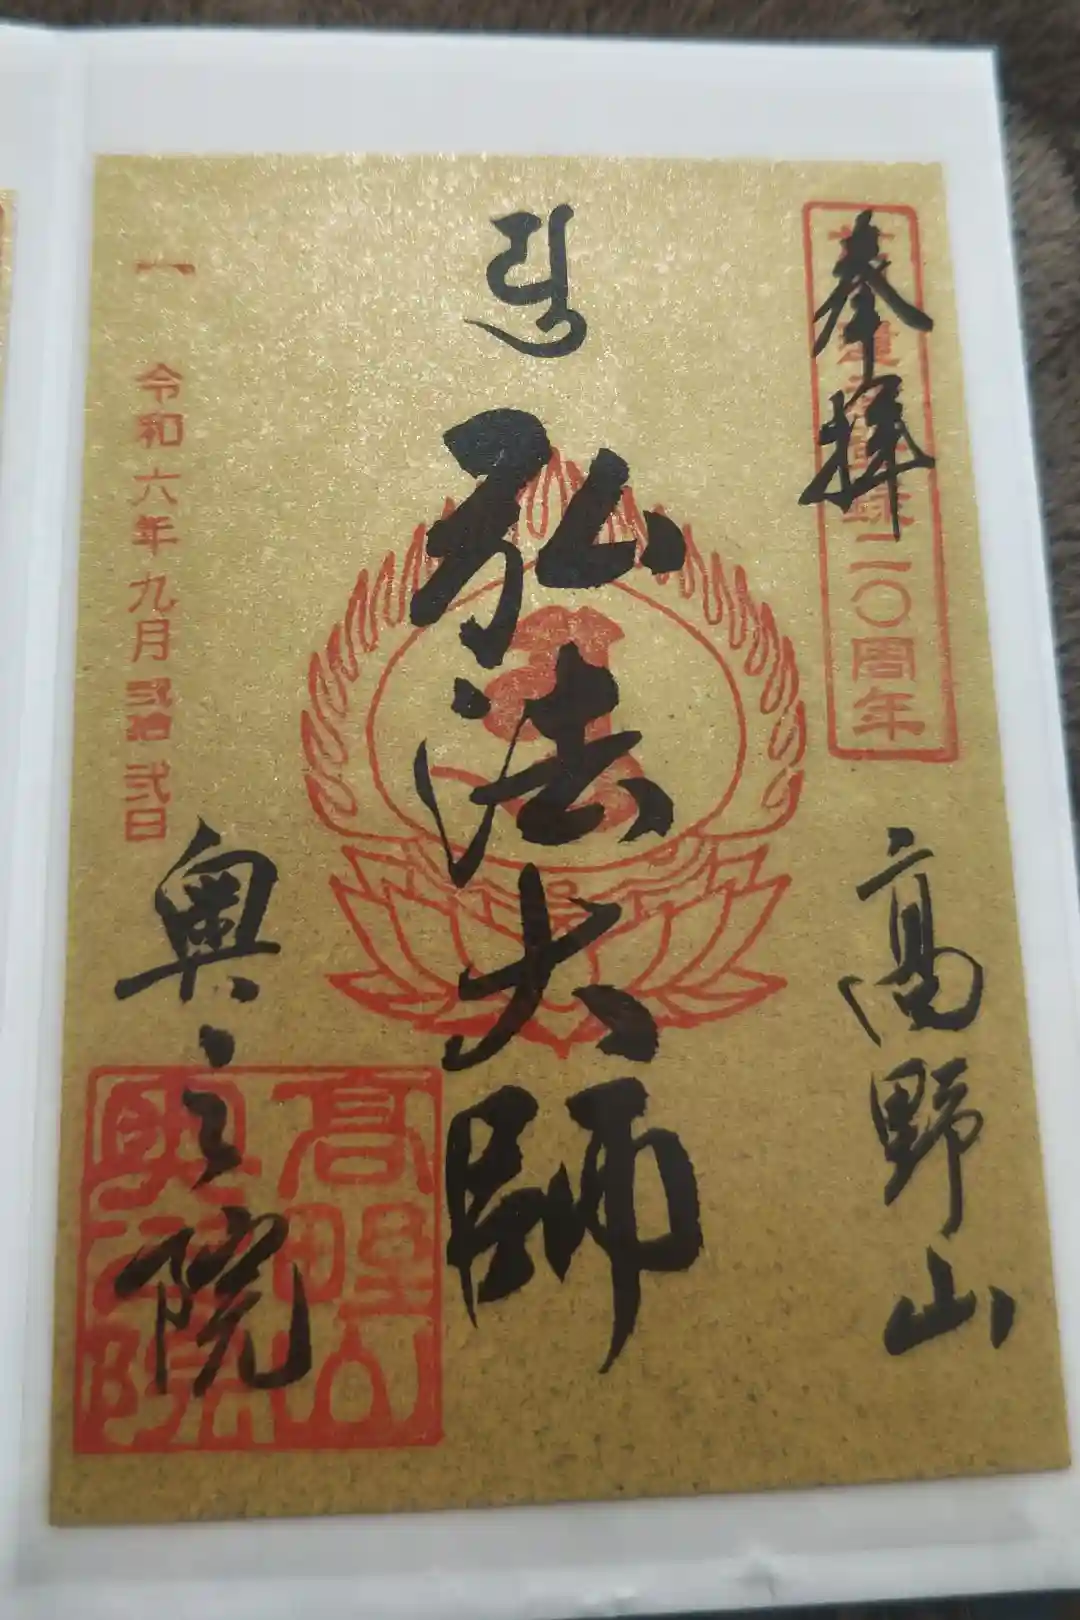 奉拝
二〇周年
高野山
弘法大師
令和六年九月弐拾弐日
奥之院
高野山
奥之院